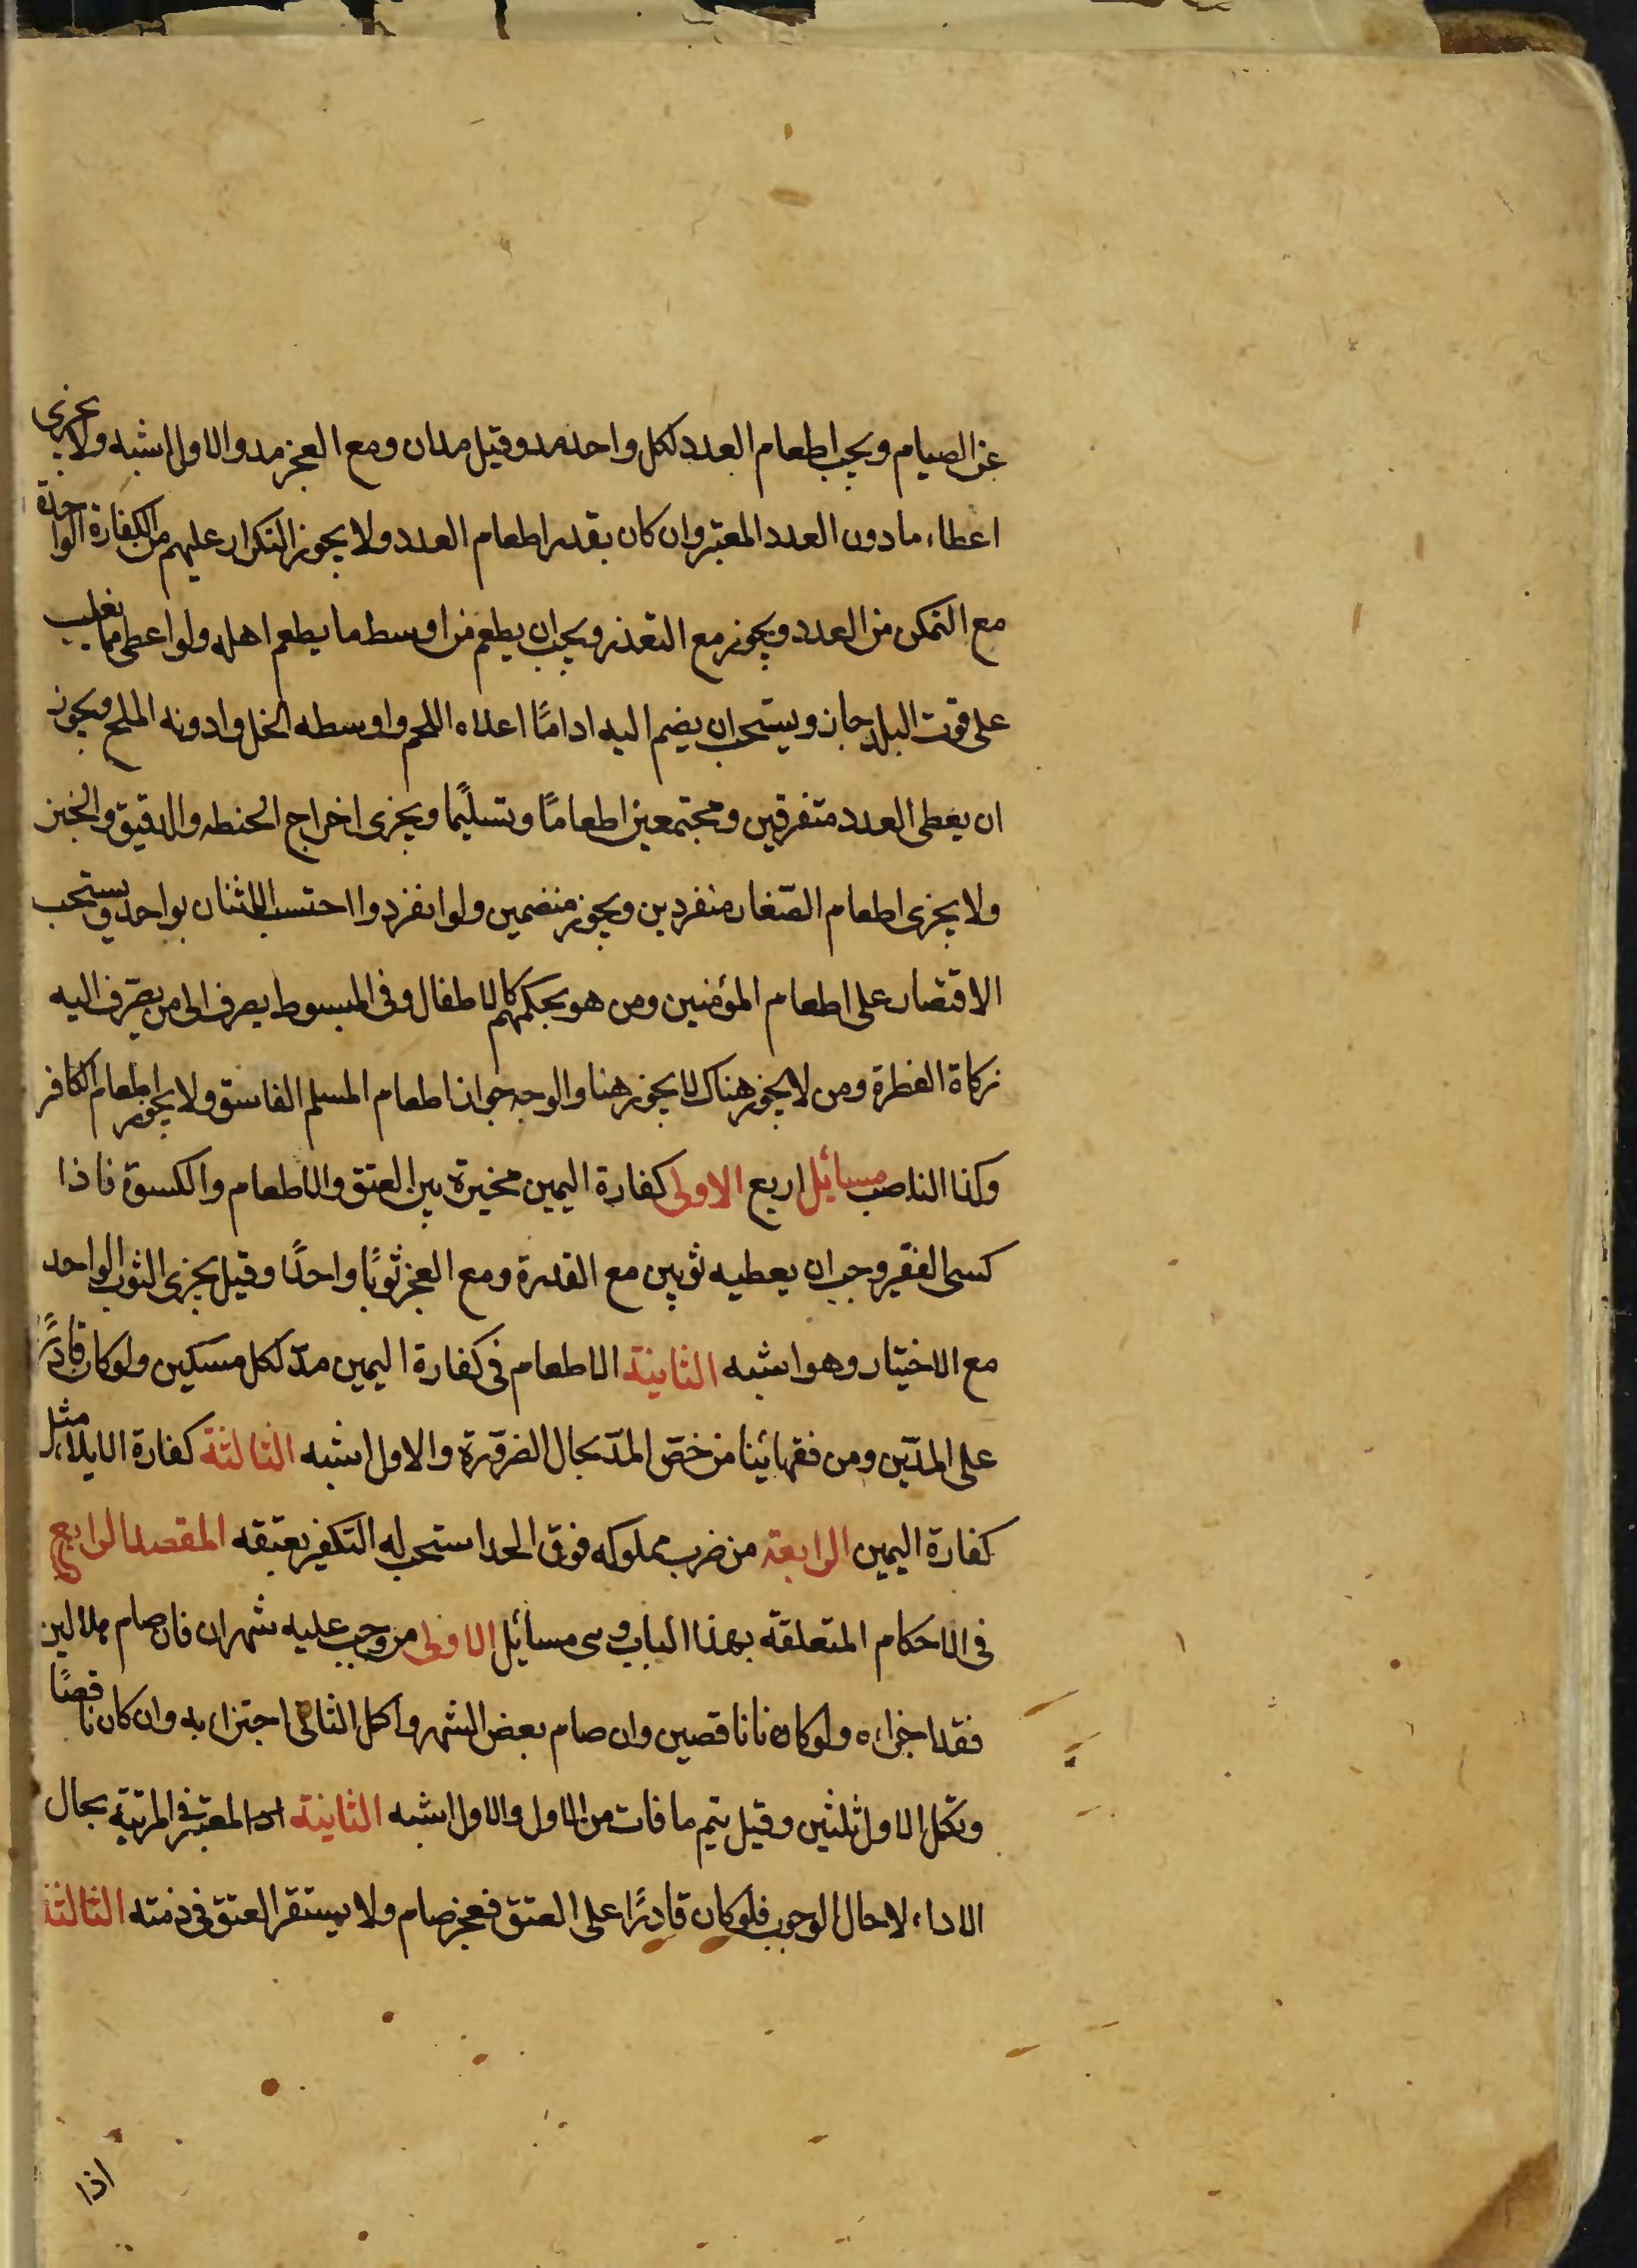 عن الصيام ويجب اطعام العدد لكل واحد مد وقيل مدان ومع العجز مد والاول اشبه ولا يجزى
اعطاء ما دون العدد المعتبر وان كان بقدر اطعام العدد ولا يجوز التكرار عليهم من الكفارة الواحدة
مع التمكن من العدد ويجوز مع التعذر ويجب ان يطعم من اوسط ما يطعم اهله ولو اعطى مما يغلب
على قوت البلد جاز ويستحب ان يضم اليه اداما اعلاه اللحم واوسطه الخل وادونه الملح ويجوز
ان يعطى العدد متفرقين ومجتمعين اطعامًا وتسليمًا ويجزى اخراج الحنطه والدقيق والخبز
ولا يجزى اطعام الصّغار منفردين ويجوز منضمين ولو انفردوا احتسب الاثنان بواحد ويستحب
الاقتصار على اطعام المؤمنين ومن هو بحكمهم كالاطفال وفى المبسوط يصرف الى من يصرف اليه
زكاة الفطرة ومن لا يجوز هناك لا يجوز هنا والوجه جواز اطعام المسلم الفاسق ولا يجوز اطعام الكافر
وكذا الناصب مسائل اربع الاولى كفارة اليمين مخيرة بين العتق والاطعام والكسوة فاذا
كسى الفقير وجب ان يعطيه ثوبين مع القدرة ومع العجز ثوبًا واحدًا وقيل يجزى الثوب الواحد
مع الاختيار وهو اشبه الثانية الاطعام فى كفارة اليمين مدّ لكل مسكين ولو كان قادرًا
على المدّين ومن فقهائنا من خصّ المدّ بحال الضرورة والاول اشبه الثالثة كفارة الايلاء مثل
كفارة اليمين الرابعة من ضرب مملوكه فوق الحد استحب له التكفير بعتقه المقصد الرابع
فى الاحكام المتعلقة بهذا الباب وهى مسائل الاولى من وجب عليه شهران فان صام هلالين
فقد اجزاه ولو كانا ناقصين وان صام بعض الشهر واكمل الثانى اجتزا به وان كان ناقصًا
ويكمل الاول ثلثين وقيل يتم ما فات من الاول والاول اشبه الثانية المعتبر فى المرتبة بحال
الاداء لا حال الوجوب فلو كان قادرًا على العتق فعجز صام ولا يستقر العتق فى ذمته الثالثة
اذا